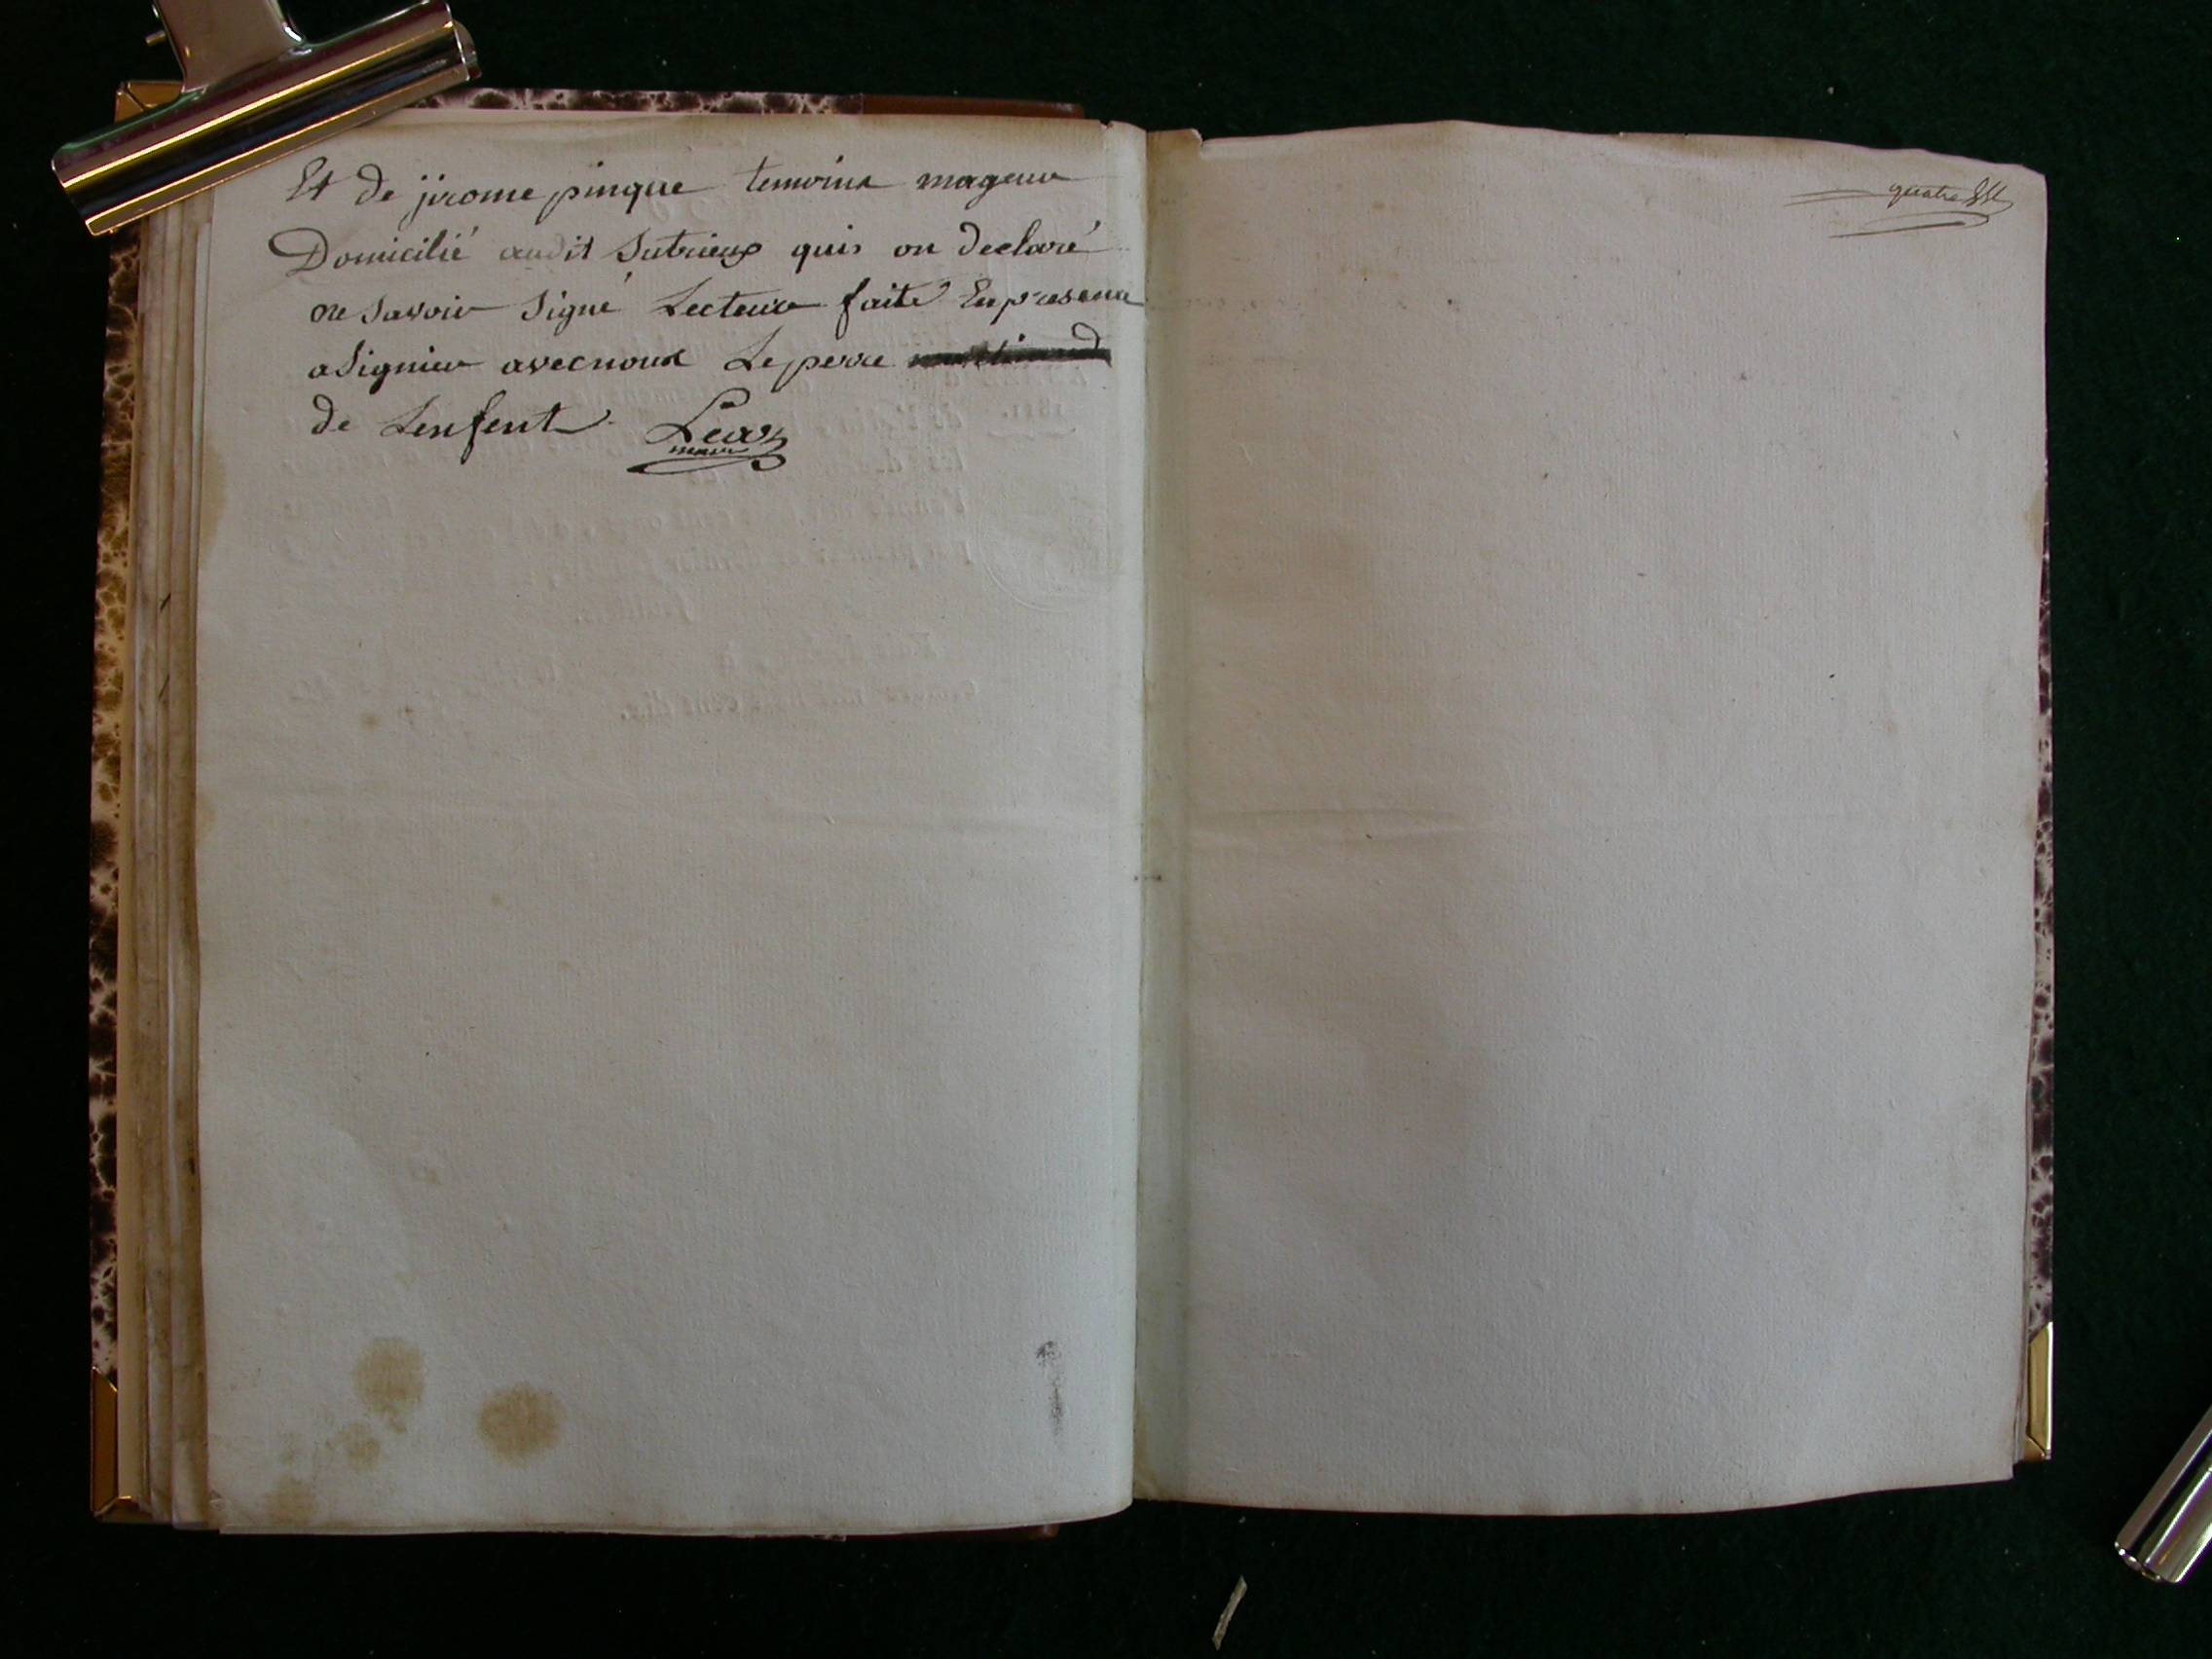 Et de jirome pinque temoins mageur
Domicilié audit Sutrieux quis on declaré
ne Savoir Signé Lecteure faite En presence
a Signier avec nous Le perre
de Lenfent
maire
quatre